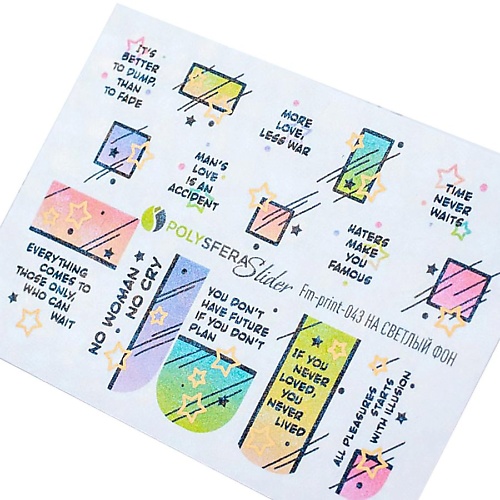 IT'S
BETTER
TO DUMP,
THAN
TO FADE
MORE
LOVE,
LESS WAR
MAN'S
LOVE
IS AN
ACCIDENT
TIME
NEVER
WAITS
HATERS
MAKE
YOU
FAMOUS
POLYSFERA Slider
Fm-print-043 НА СВЕТЛЫЙ ФОН
EVERYTHING
COMES TO
THOSE ONLY,
WHO CAN
WAIT
NO WOMAN
NO CRY
YOU DON'T
HAVE FUTURE
IF YOU DON'T
PLAN
IF YOU
NEVER
LOVED,
YOU
NEVER
LIVED
ALL PLEASURES
STARTS
WITH ILLUSION